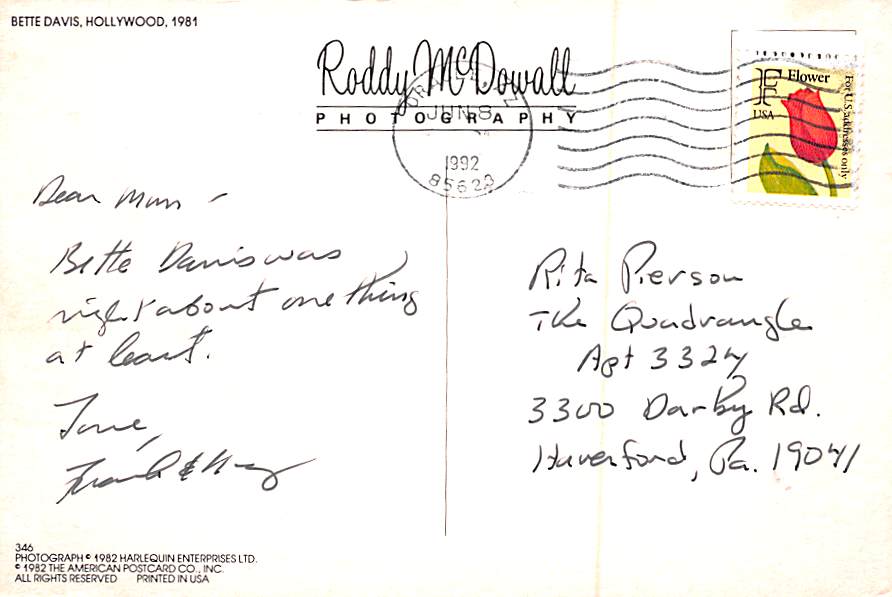 BETTE DAVIS, HOLLYWOOD, 1981
Roddy McDowall
PHOTOGRAPHY
JUN 8
1992
85628
F Flower
USA
For U.S. addresses only
Dear Mum -
Bette Davis was
right about one thing
at least.
Love,
Frank &
Rita Pierson
The Quadrangle
Apt 3324
3300 Darby Rd.
Haverford, Pa. 19041
346
PHOTOGRAPH © 1982 HARLEQUIN ENTERPRISES LTD.
© 1982 THE AMERICAN POSTCARD CO., INC.
ALL RIGHTS RESERVED PRINTED IN USA